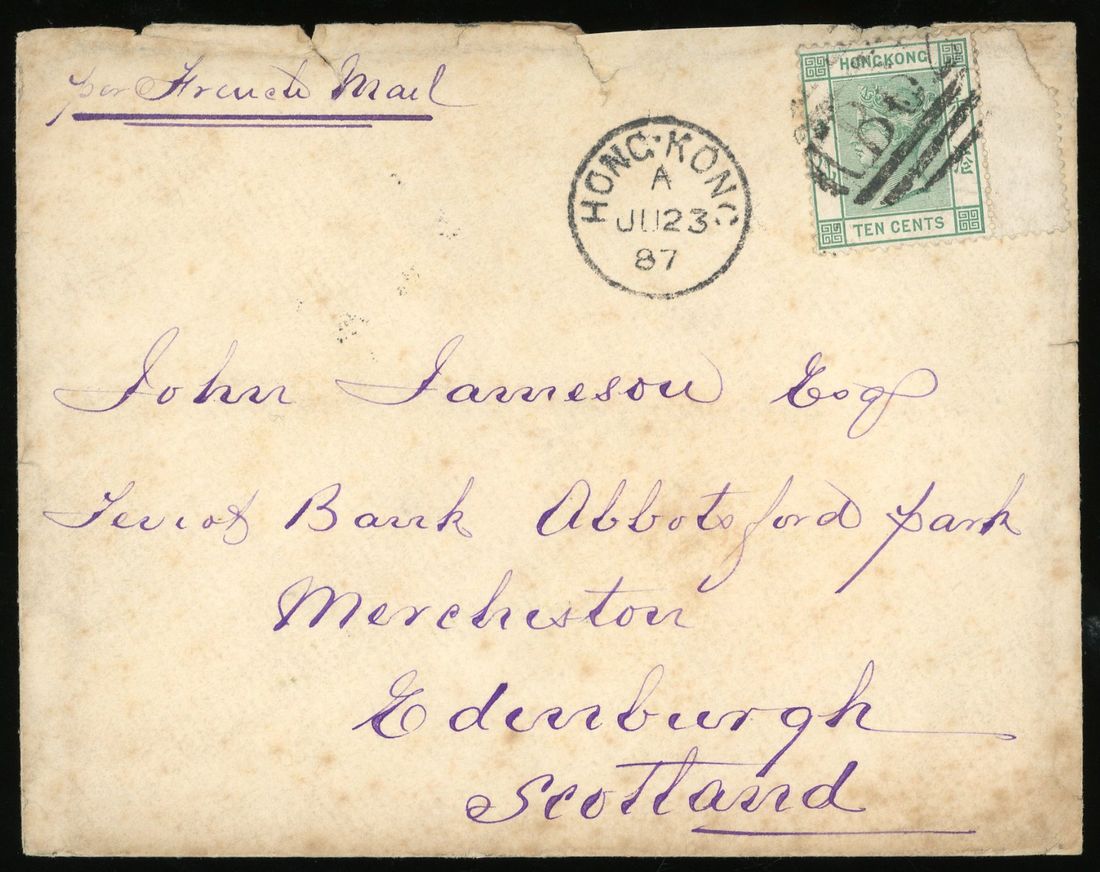 per French Mail
HONGKONG
TEN CENTS
HONG·KONG
A
JU 23
87
John Jameson Esq
Teviot Bank Abbotsford park
Merchiston
Edinburgh
Scotland